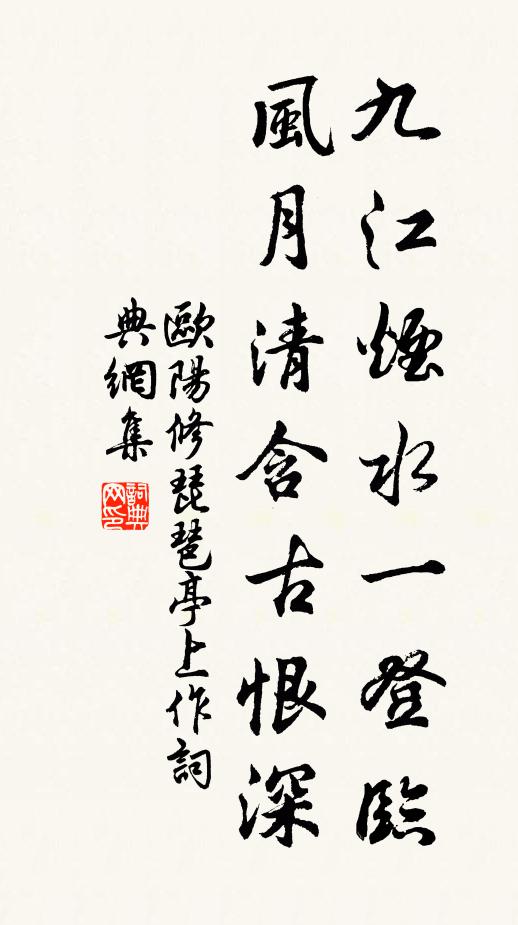 九江煙水一登臨
風月清含古恨深
歐陽修琵琶亭上作詞
典網集
詞典
网印